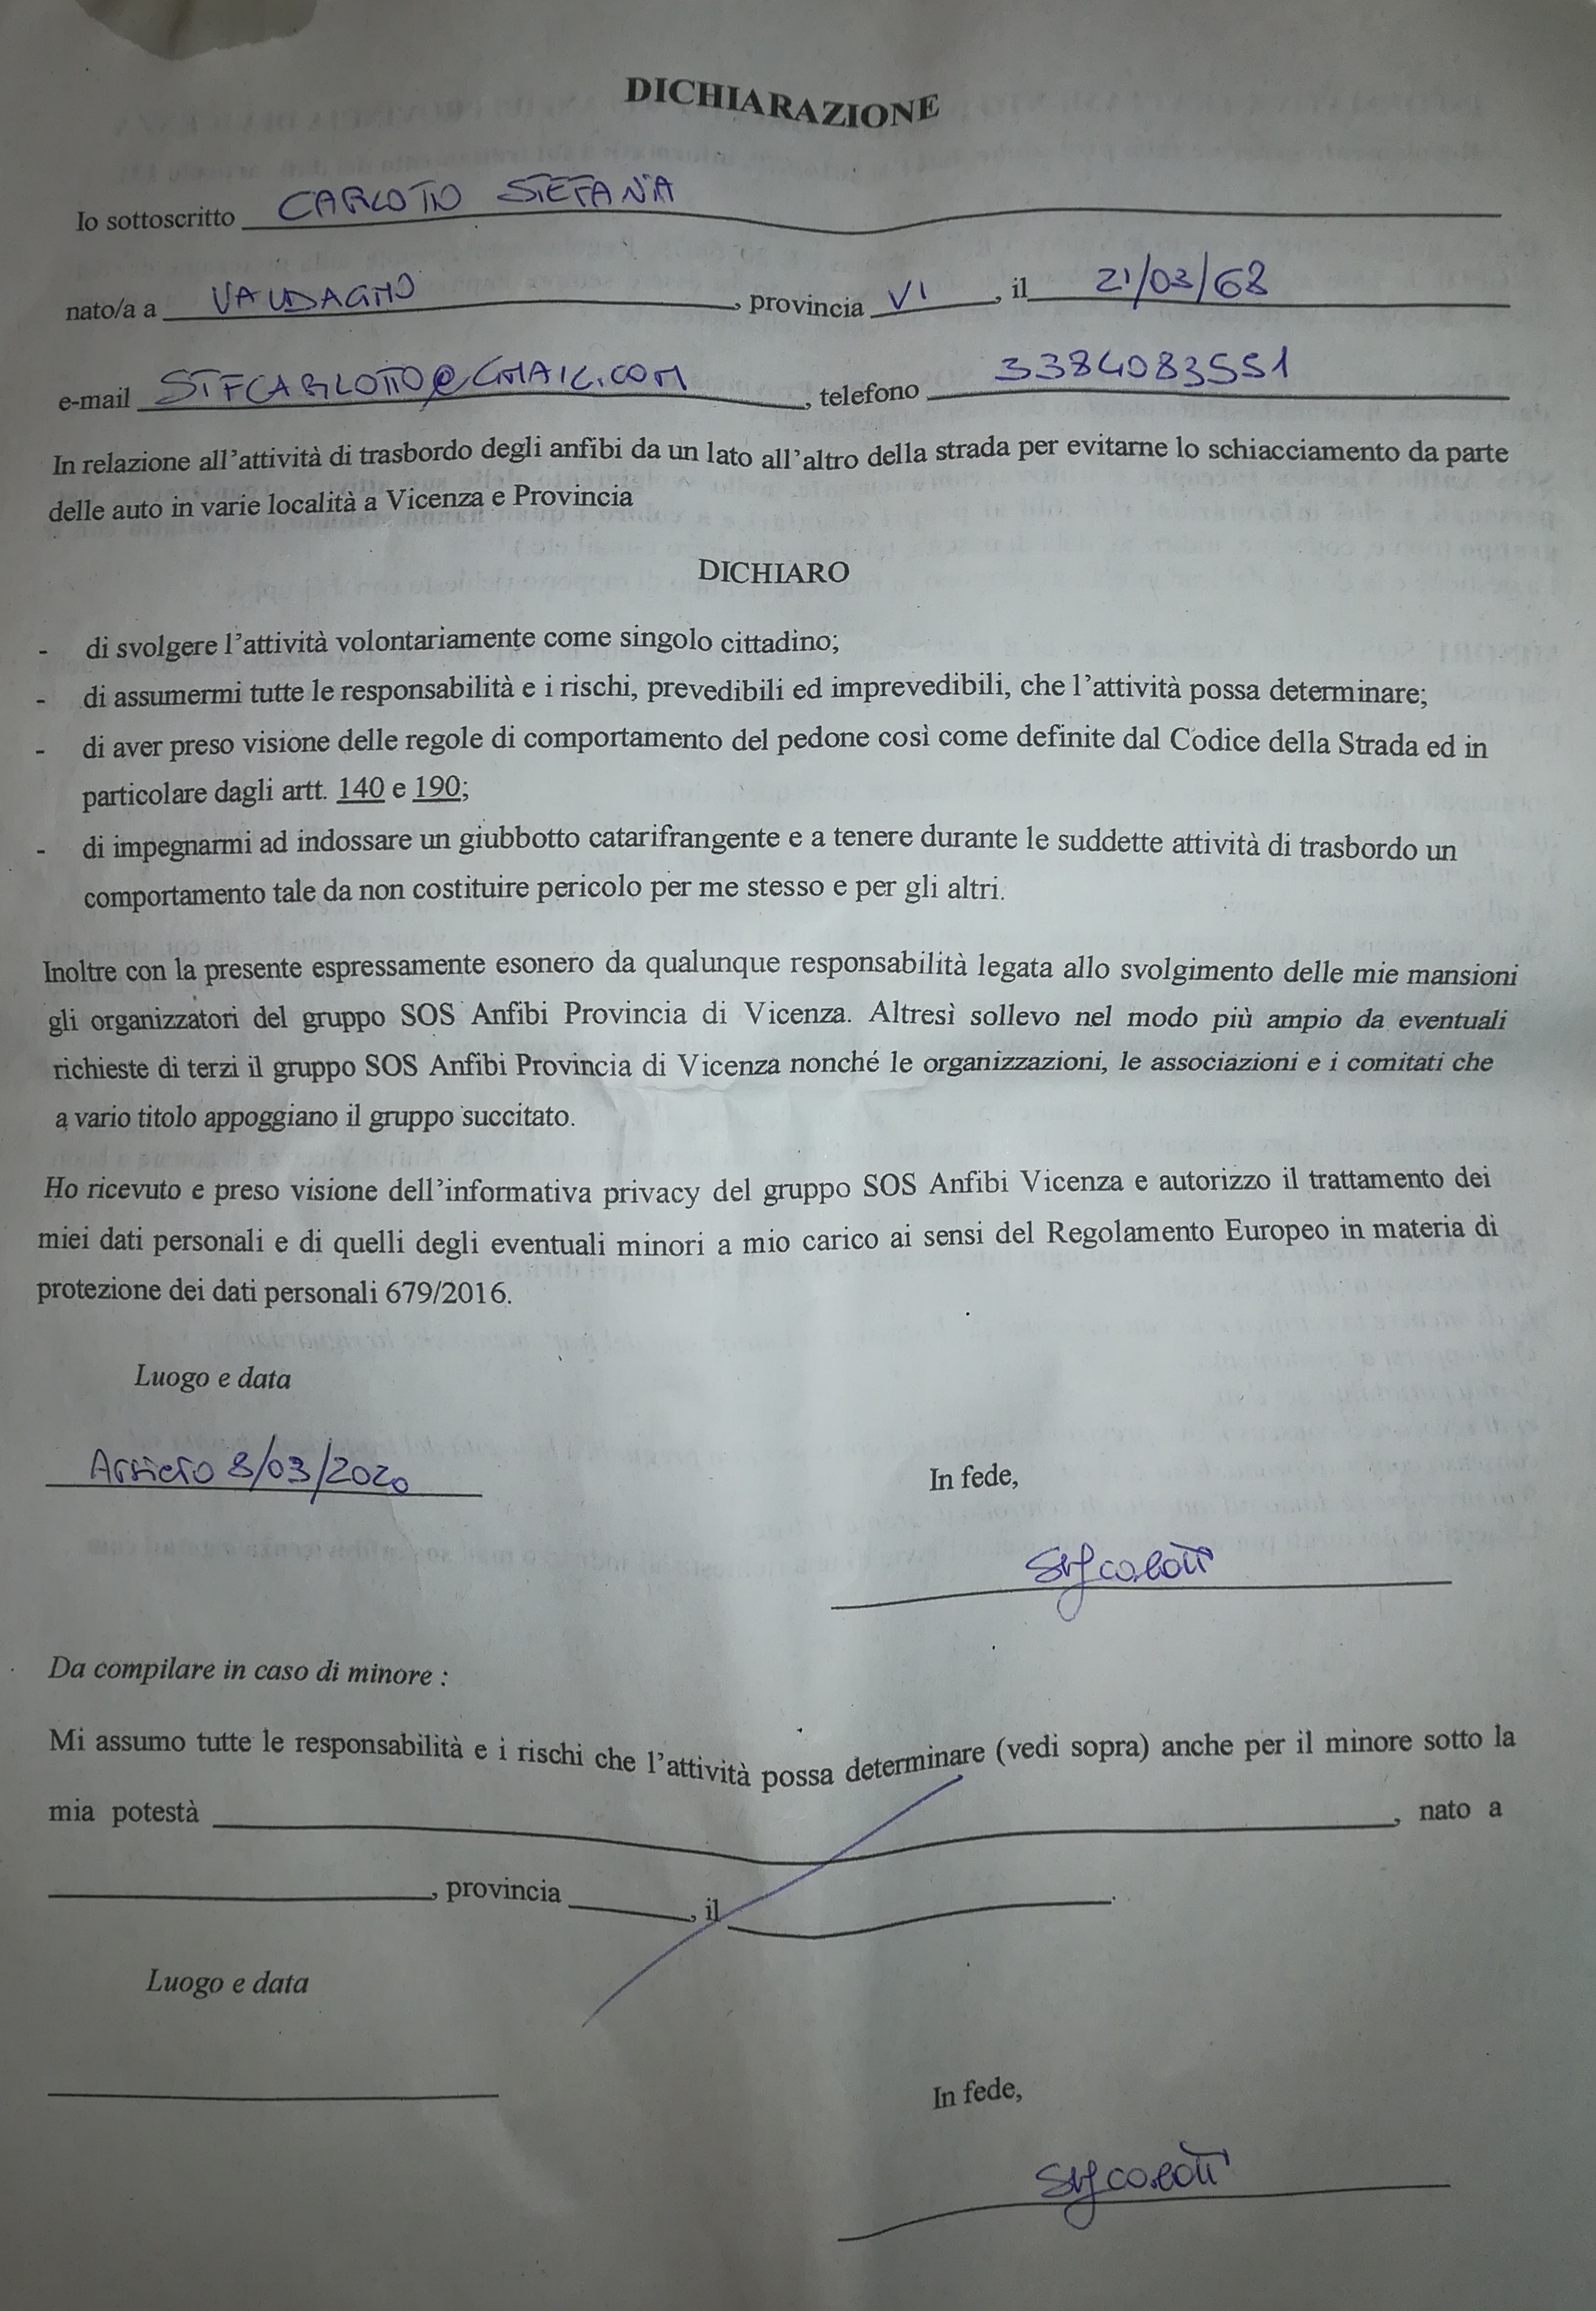 DICHIARAZIONE
Io sottoscritto CARLOTTO STEFANIA
nato/a a VALDAGNO, provincia VI, il 21/03/68
e-mail STFCARLOTTO@GMAIL.COM, telefono 3384083551
In relazione all'attività di trasbordo degli anfibi da un lato all'altro della strada per evitarne lo schiacciamento da parte
delle auto in varie località a Vicenza e Provincia
DICHIARO
- di svolgere l'attività volontariamente come singolo cittadino;
- di assumermi tutte le responsabilità e i rischi, prevedibili ed imprevedibili, che l'attività possa determinare;
- di aver preso visione delle regole di comportamento del pedone così come definite dal Codice della Strada ed in
particolare dagli artt. 140 e 190;
- di impegnarmi ad indossare un giubbotto catarifrangente e a tenere durante le suddette attività di trasbordo un
comportamento tale da non costituire pericolo per me stesso e per gli altri.
Inoltre con la presente espressamente esonero da qualunque responsabilità legata allo svolgimento delle mie mansioni
gli organizzatori del gruppo SOS Anfibi Provincia di Vicenza. Altresì sollevo nel modo più ampio da eventuali
richieste di terzi il gruppo SOS Anfibi Provincia di Vicenza nonché le organizzazioni, le associazioni e i comitati che
a vario titolo appoggiano il gruppo succitato.
Ho ricevuto e preso visione dell'informativa privacy del gruppo SOS Anfibi Vicenza e autorizzo il trattamento dei
miei dati personali e di quelli degli eventuali minori a mio carico ai sensi del Regolamento Europeo in materia di
protezione dei dati personali 679/2016.
Luogo e data
Arsiero 8/03/2020
In fede,
Da compilare in caso di minore :
Mi assumo tutte le responsabilità e i rischi che l'attività possa determinare (vedi sopra) anche per il minore sotto la
mia potestà , nato a
, provincia , il .
Luogo e data
In fede,